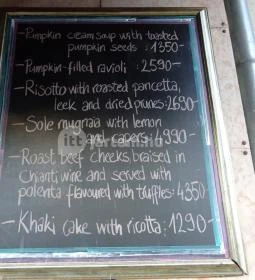 -Pumpkin cream soup with toasted
pumpkin seeds :1350-
-Pumpkin-filled ravioli : 2590-
-Risotto with roasted pancetta,
leek and dried prunes:2690-
-Sole mugnaia with lemon
and capers: 4990-
-Roast beef cheeks braised in
Chianti wine and served with
polenta flavoured with truffles: 4350
-Khaki cake with ricotta: 1290-